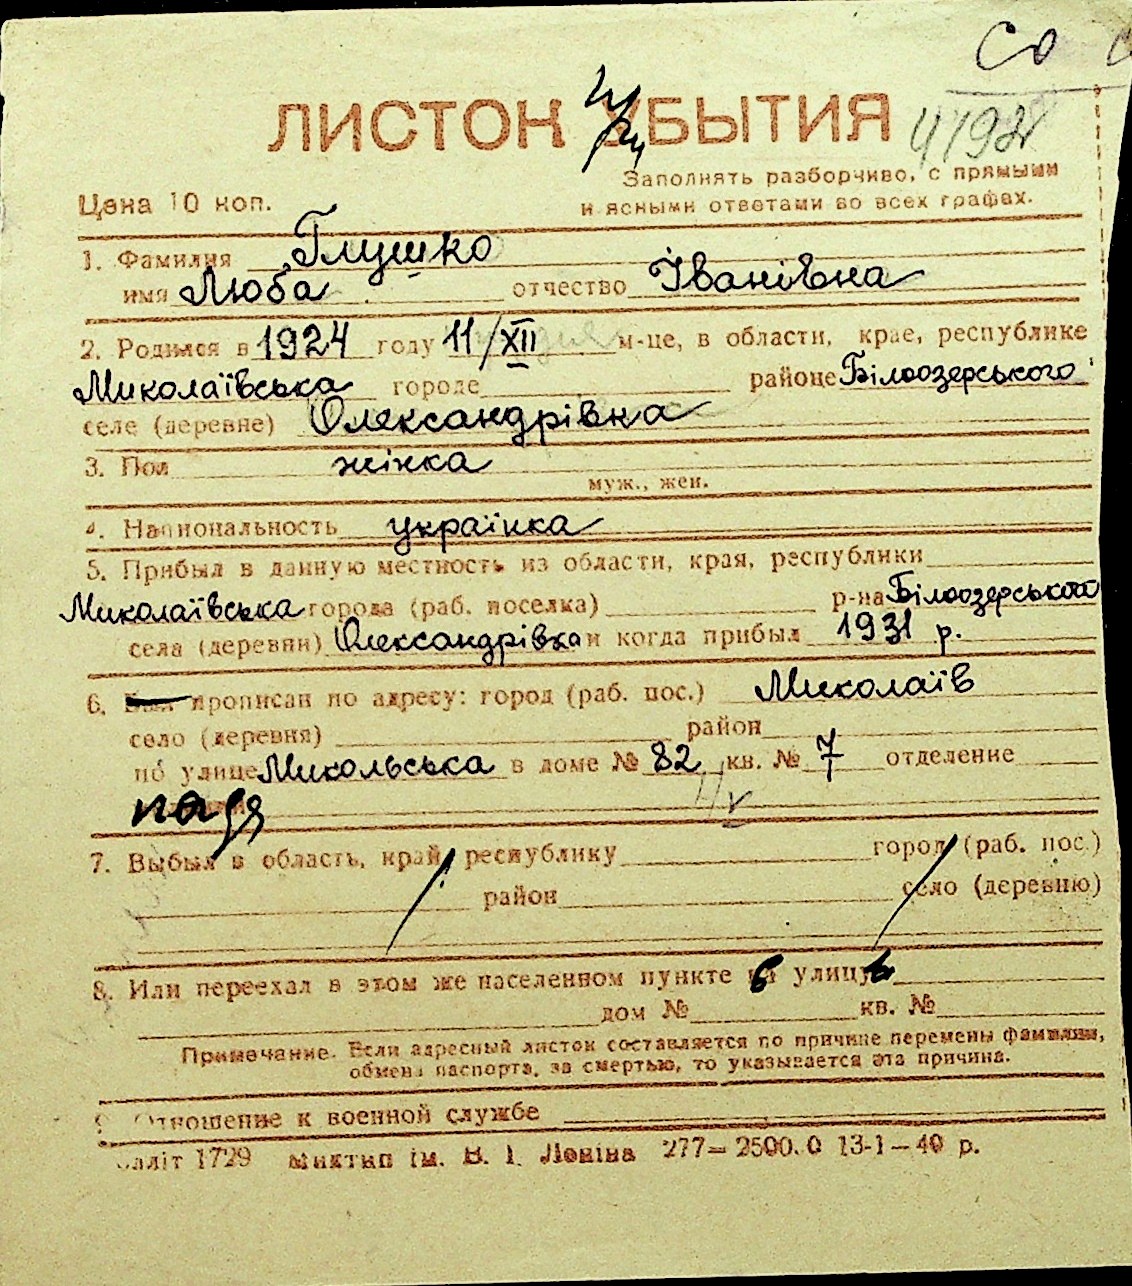 СО
ЛИСТОК УБЫТИЯ
Цена 10 коп.
Заполнять разборчиво, с прямыми
и ясными ответами во всех графах.
1. Фамилия Глушко
имя Люба отчество Іванівна
2. Родился в 1924 году 11/XII м-це, в области, крае, республике
Миколаївська городе районе Білоозерського
селе (деревне) Олександрівка
3. Пол жінка
муж., жен.
4. Национальность українка
5. Прибыл в данную местность из области, края, республики
Миколаївська города (раб. поселка) р-на Білоозерський
села (деревни) Олександрівка и когда прибыл 1931 р.
6. прописан по адресу: город (раб. пос.) Миколаїв
село (деревня) район
по улице Микольська в доме № 82 кв. № 7 отделение
7. Выбыл в область, край, республику город (раб. пос.)
район село (деревню)
8. Или переехал в этом же населенном пункте улицу
дом № кв. №
Примечание. Если адресный листок составляется по причине перемены фамилии,
обмена паспорта, за смертью, то указывается эта причина.
9. Отношение к военной службе
1729 Миктип ім. В. І. Леніна 277— 2500.0 13-1—40 р.